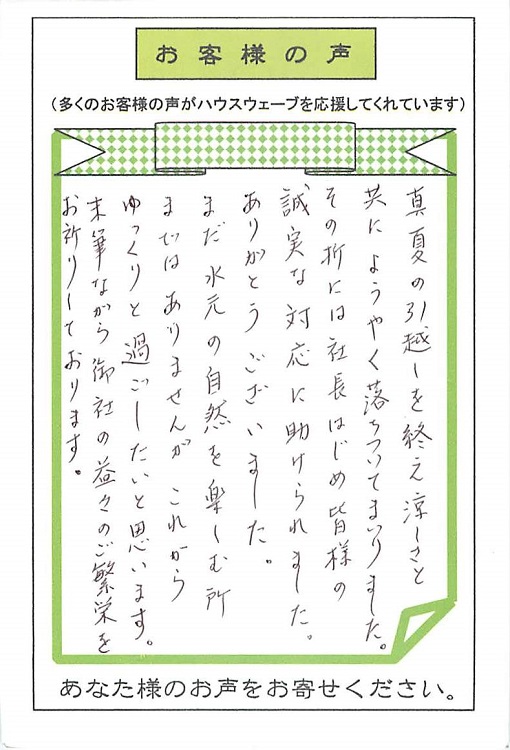 お客様の声
(多くのお客様の声がハウスウェーブを応援してくれています)
真夏の引越しを終え涼しさと
共にようやく落ちついてまいりました。
その折には社長はじめ皆様の
誠実な対応に助けられました。
ありがとうございました。
まだ水元の自然を楽しむ所
まではありませんがこれから
ゆっくりと過ごしたいと思います。
末筆ながら御社の益々のご繁栄を
お祈りしております。
あなた様のお声をお寄せください。